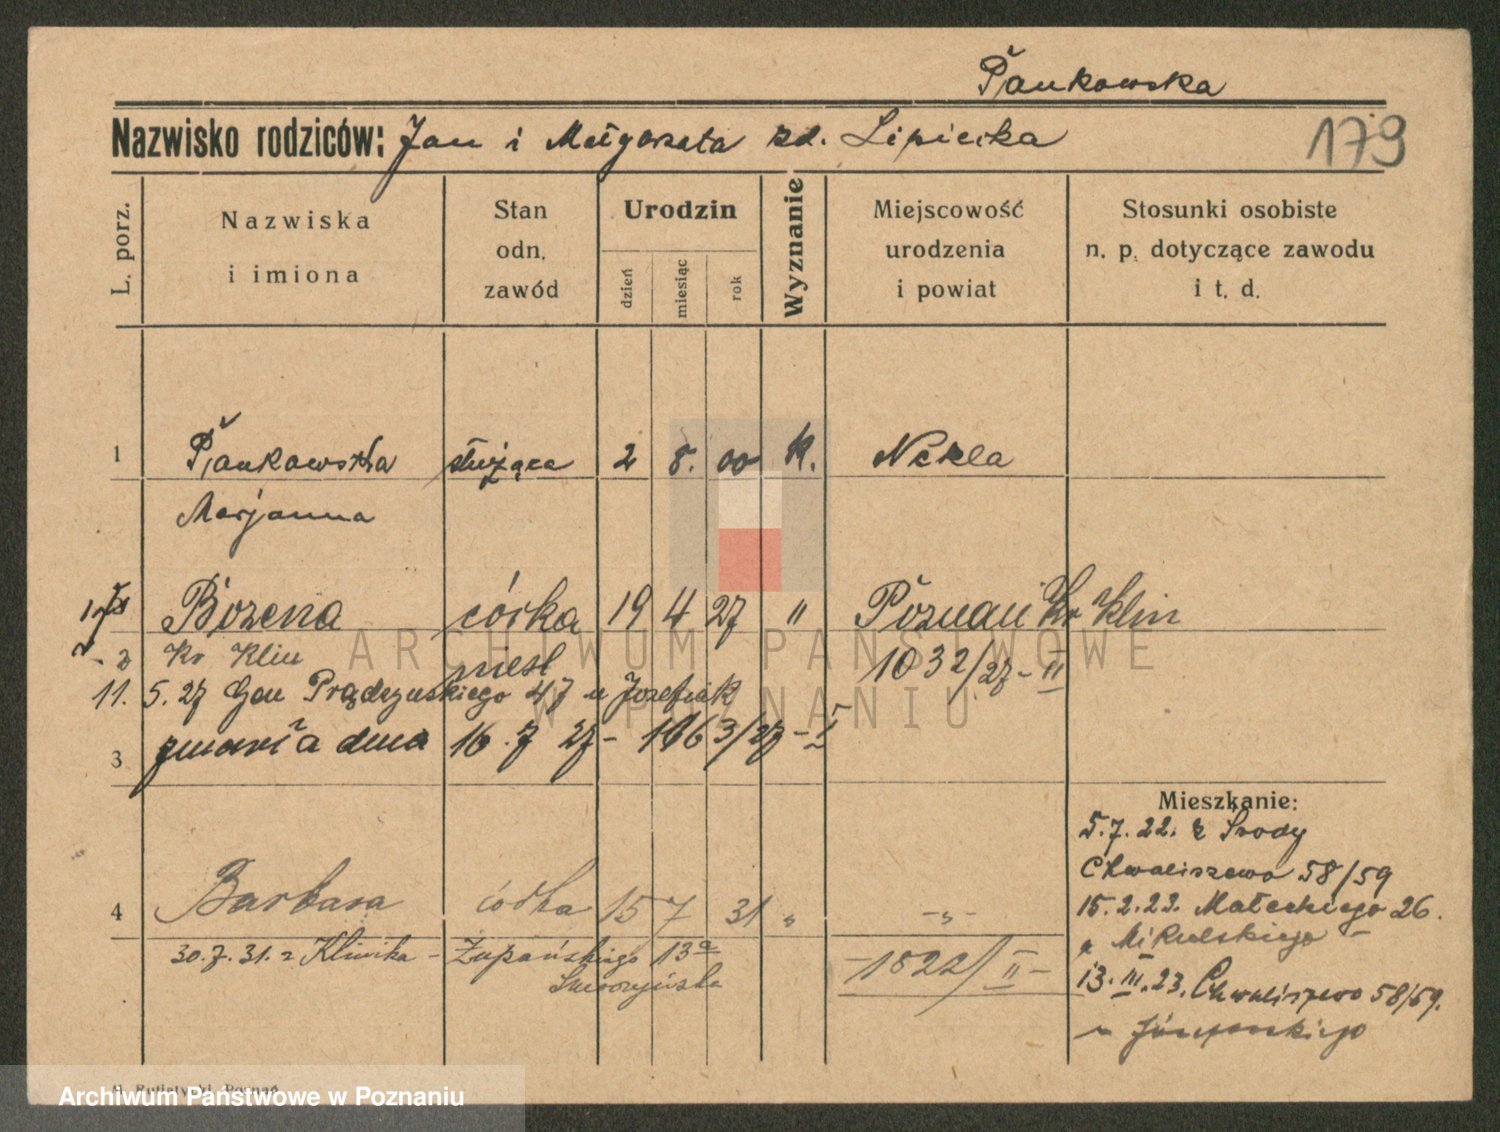 Pankowska
Nazwisko rodziców: Jan i Małgorzata zd. Lipiecka
179
L. porz.
Nazwiska i imiona
Stan odn. zawód
Urodzin
dzień
miesiąc
rok
Wyznanie
Miejscowość urodzenia i powiat
Stosunki osobiste n. p. dotyczące zawodu i t. d.
1 Pankowska służąca 2 8. 00 k. Nekla
Marjanna
Bożena córka 19 4 27 " Poznań Kr Klin
2 Kr Klin nieśl 1032/27-II
11. 5. 27 Gen Prądzyńskiego 47 u Józefiak
3 zmarła dnia 16. 7 27 - 1163/27 - I
Mieszkanie:
5.7.22. z Środy
Chwaliszewo 58/59
4 Barbara córka 15 7 31 " -"-
15.2.23. Małeckiego 26.
u Mikulskiego -
30.7.31. z Klinika - Żupańskiego 13a
-1822/II-
13.III.23. Chwaliszewo 58/59.
u
ARCHIWUM PAŃSTWOWE
W POZNANIU
Poznań
Archiwum Państwowe w Poznaniu